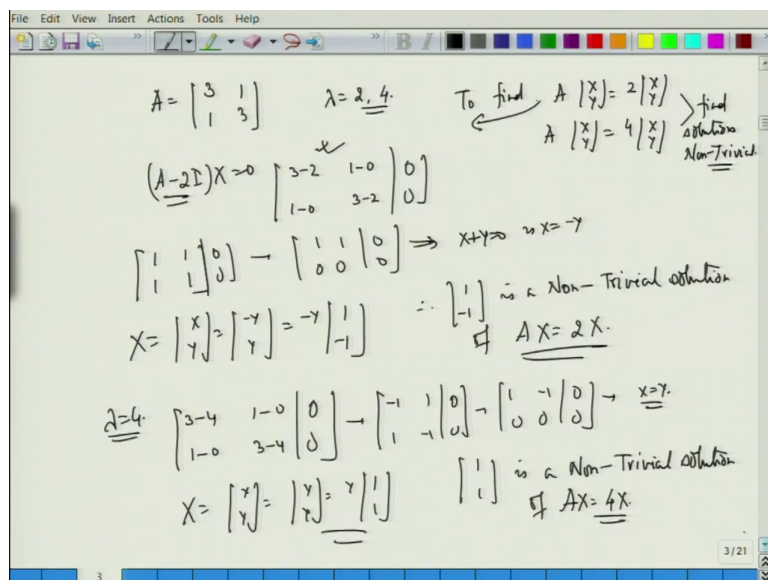 File Edit View Insert Actions Tools Help
A = [3 1; 1 3] λ = 2, 4. To find A [x; y] = 2 [x; y]
A [x; y] = 4 [x; y] > find solutions Non-Trivial
(A-2I)X=0 [3-2 1-0 | 0; 1-0 3-2 | 0]
[1 1 | 0; 1 1 | 0] → [1 1 | 0; 0 0 | 0] ⇒ x+y=0 is x=-y
X = [x; y] = [-y; y] = -y [1; -1] ∴ [1; -1] is a Non-Trivial solution
of AX = 2X.
λ=4. [3-4 1-0 | 0; 1-0 3-4 | 0] → [-1 1 | 0; 1 -1 | 0] → [1 -1 | 0; 0 0 | 0] → x=y.
X = [x; y] = [y; y] = y [1; 1] [1; 1] is a Non-Trivial solution
of AX = 4X.
3/21
3